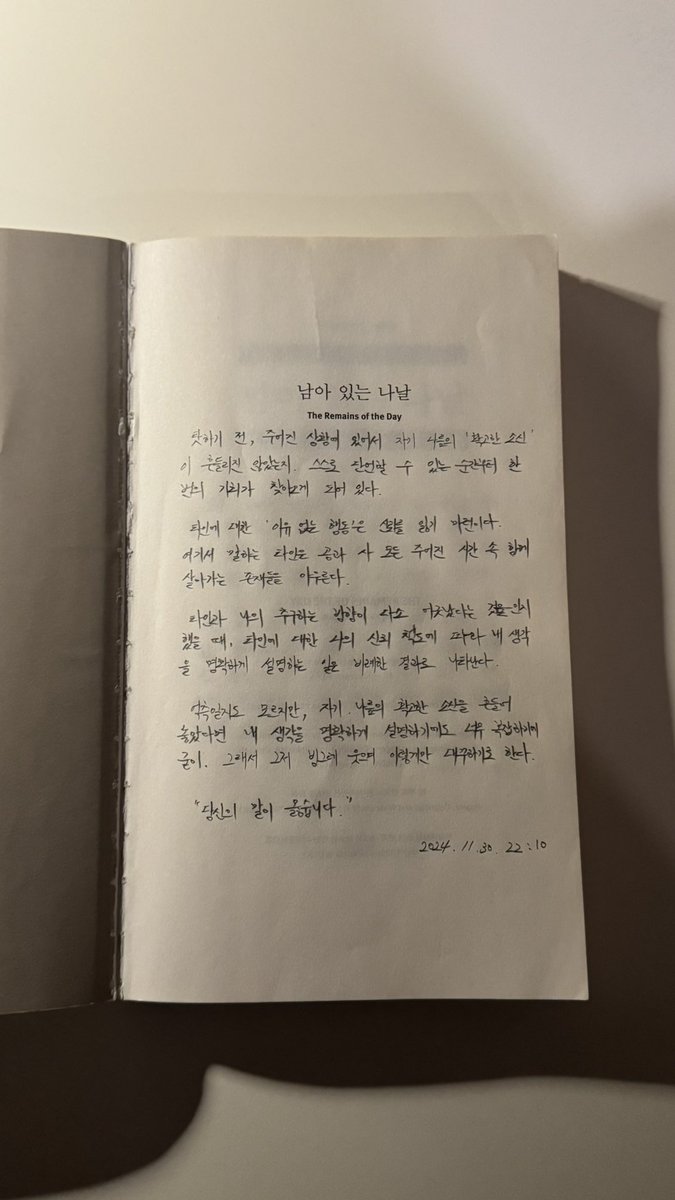 남아 있는 나날
The Remains of the Day
탓하기 전, 주어진 상황에 있어서 자기 나름의 '확고한 소신'
이 흔들리진 않았는지. 스스로 단언할 수 있는 순간부터 한
번의 기회가 찾아오게 되어 있다.
타인에 대한 '이유 없는 행동'은 신뢰를 잃기 마련이다.
여기서 말하는 타인은 공과 사 모든 주어진 시간 속 함께
살아가는 존재들을 아우른다.
타인과 나의 추구하는 방향이 다소 어긋났다는 것을 인지
했을 때, 타인에 대한 나의 신뢰 척도에 따라 내 생각
을 명확하게 설명하는 일은 비례한 결과로 나타난다.
억측일지도 모르지만, 자기 나름의 확고한 소신을 흔들어
놓았다면 내 생각을 명확하게 설명하기에도 너무 복잡하기에
굳이. 그래서 그저 빙그레 웃으며 이렇게만 대꾸하기로 한다.
"당신의 말이 옳습니다."
2024. 11. 30. 22:10